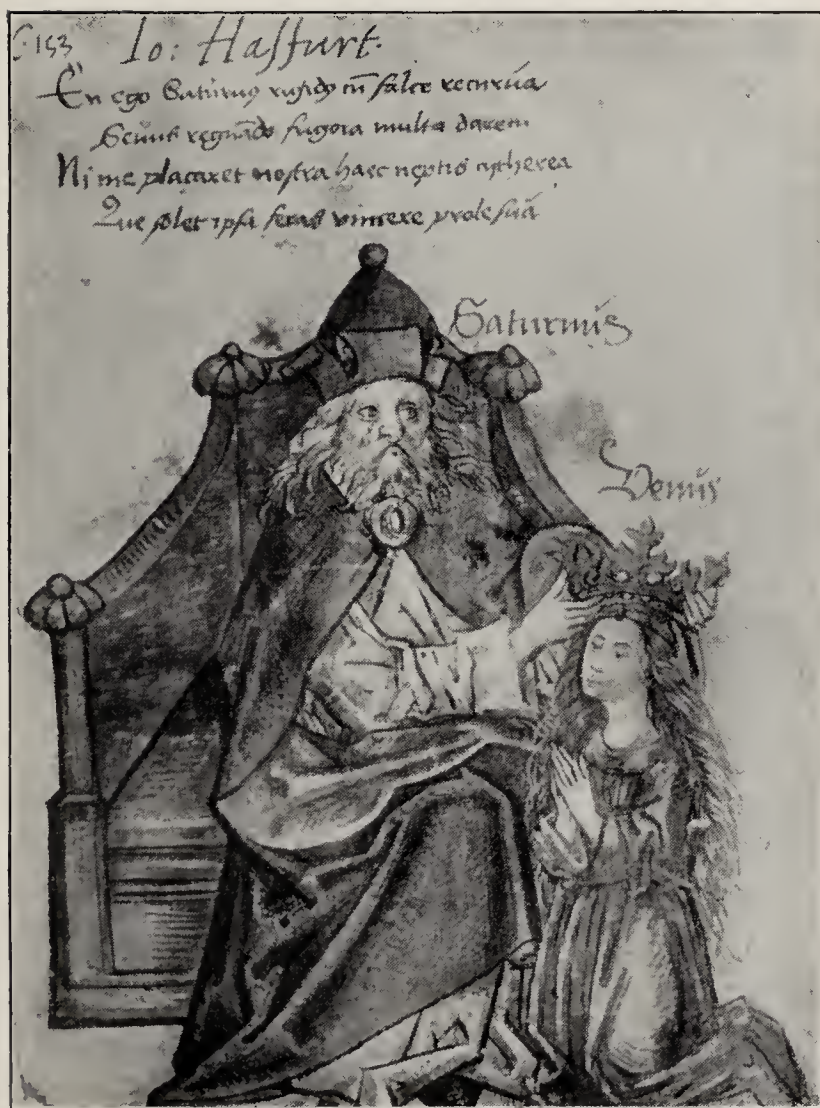 C. 153 Io: Hassfurt.
En ego Saturnus rigidꝰ cū falce recurua
Scuus regnādo fugora multa darem
Ni me placaret nostra haec neptis cytherea
Que solet ipsa feras vincere prole suā
Saturnus
Venus